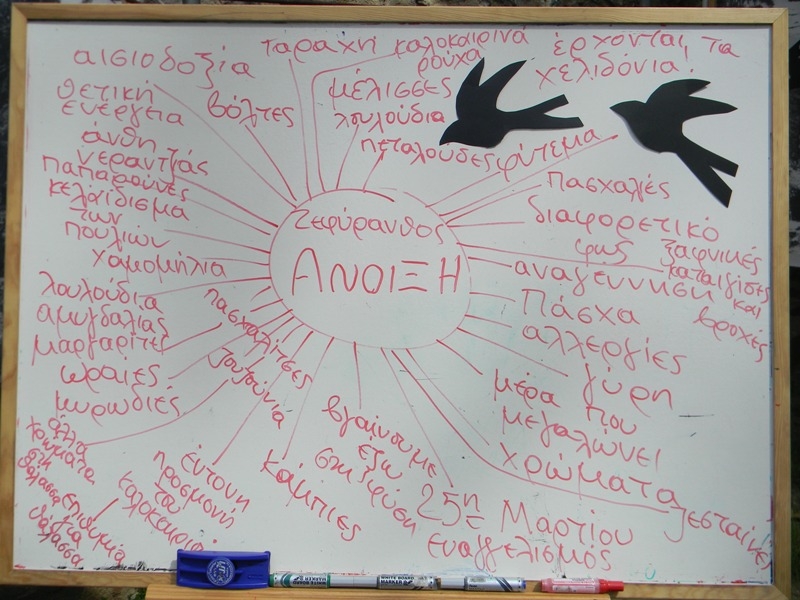 αισιοδοξία
ταραχή
καλοκαιρινά
ρούχα
έρχονται τα
χελιδόνια!
θετική
ενέργεια
βόλτες
μέλισσες
λουλούδια
πεταλούδες
φύτεμα
άνθη
νεραντζιάς
παπαρούνες
κελάιδισμα
των
πουλιών
χαμομήλια
Ζεφύρανθος
ΑΝΟΙΞΗ
πασχαλιές
διαφορετικό
φως
ξαφνικές
καταιγίδες
και
βροχές
αναγέννηση
Πάσχα
αλλεργίες
γύρη
μέρα που
μεγαλώνει
χρώματα
ζεσταίνει
λουλούδια
αμυγδαλιάς
μαργαρίτες
ωραίες
μυρωδιές
πασχαλίτσες
ζουζούνια
άλλα
χρώματα
στη
θάλασσα
επιθυμία
για
θάλασσα
έντονη
προσμονή
του
καλοκαιριού
κάμπιες
βγαίνουμε
έξω
στη φύση
25η Μαρτίου
ευαγγελισμός
WHITE BOARD
MARKER